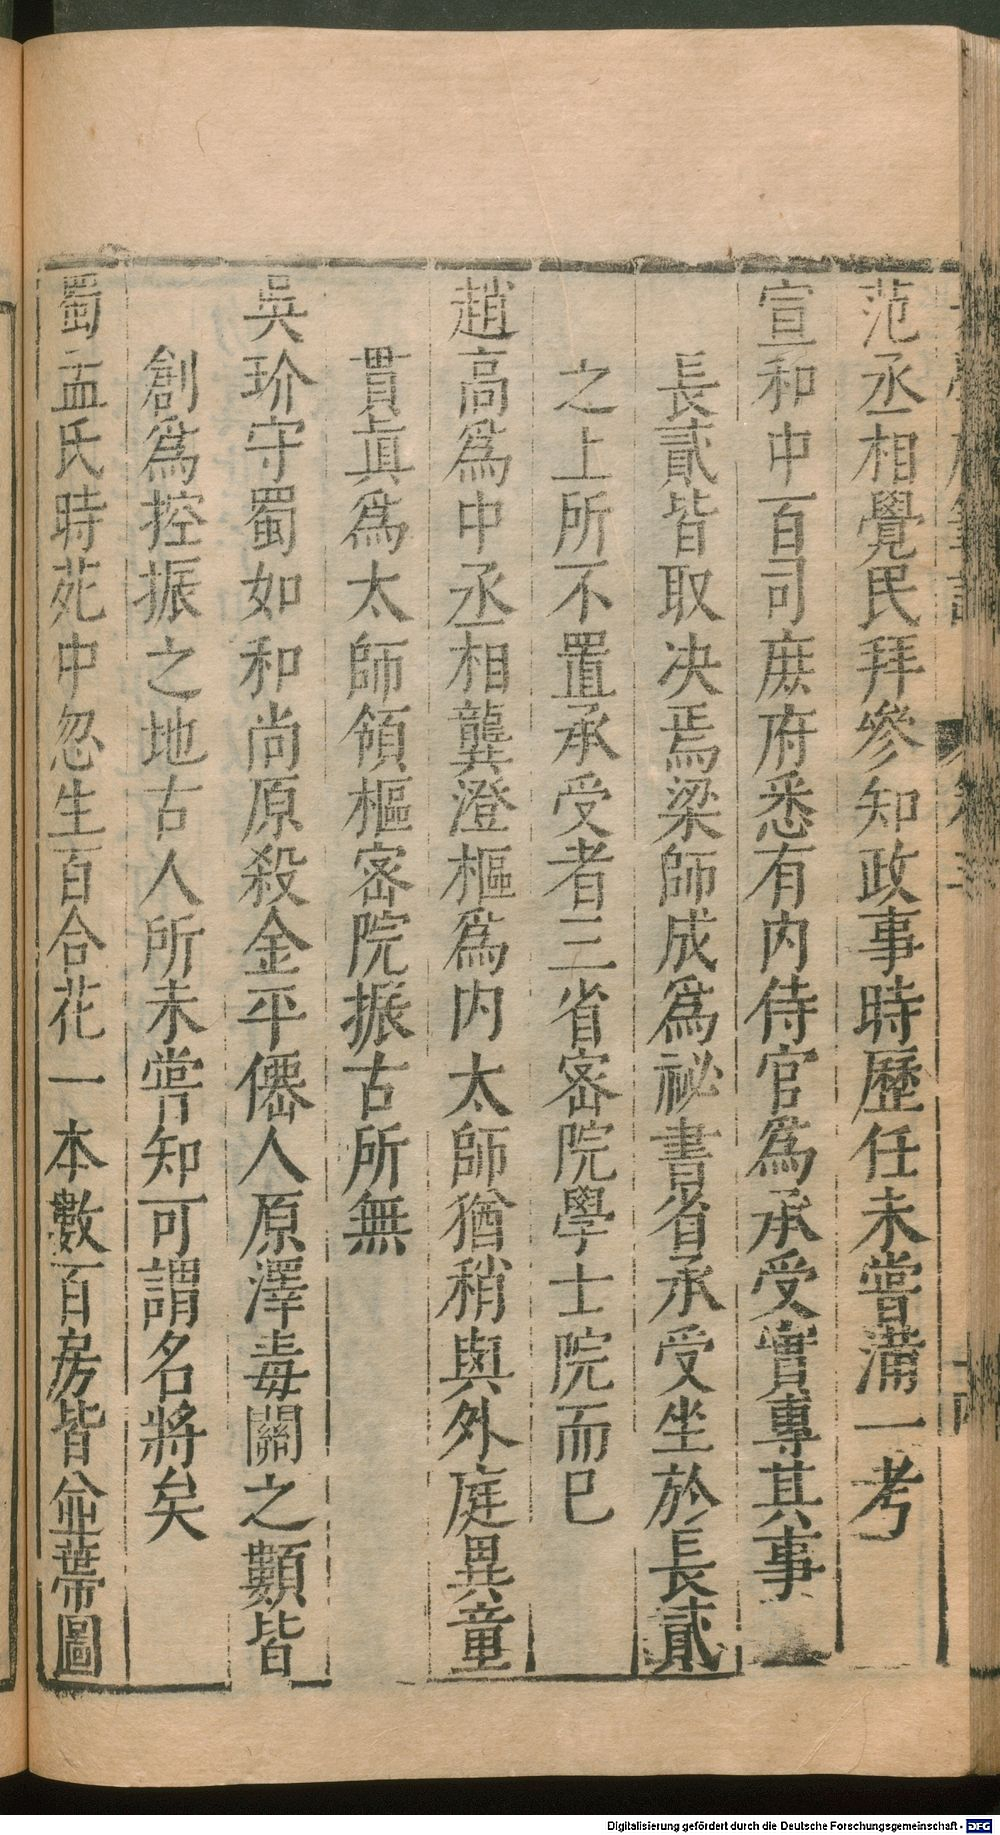 范丞相覺民拜參知政事時歷任未嘗滿一考
宣和中百司庶府悉有內侍官爲承受實專其事
長貳皆取决焉梁師成爲祕書省承受坐於長貳
之上所不置承受者三省密院學士院而巳
趙高爲中丞相龔澄樞爲內太師猶稍與外庭異童
貫眞爲太師領樞密院振古所無
吳玠守蜀如和尚原殺金平僊人原潭毒關之類皆
創爲控振之地古人所未嘗知可謂名將矣
蜀孟氏時苑中忽生百合花一本數百房皆並蔕圖
Digitalisierung gefördert durch die Deutsche Forschungsgemeinschaft - DFG